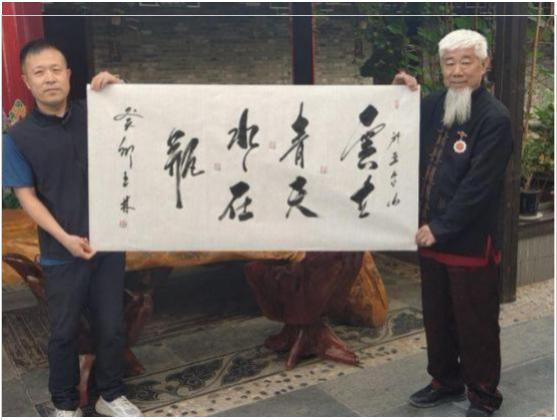 雲在
青天
水在
瓶
癸卯